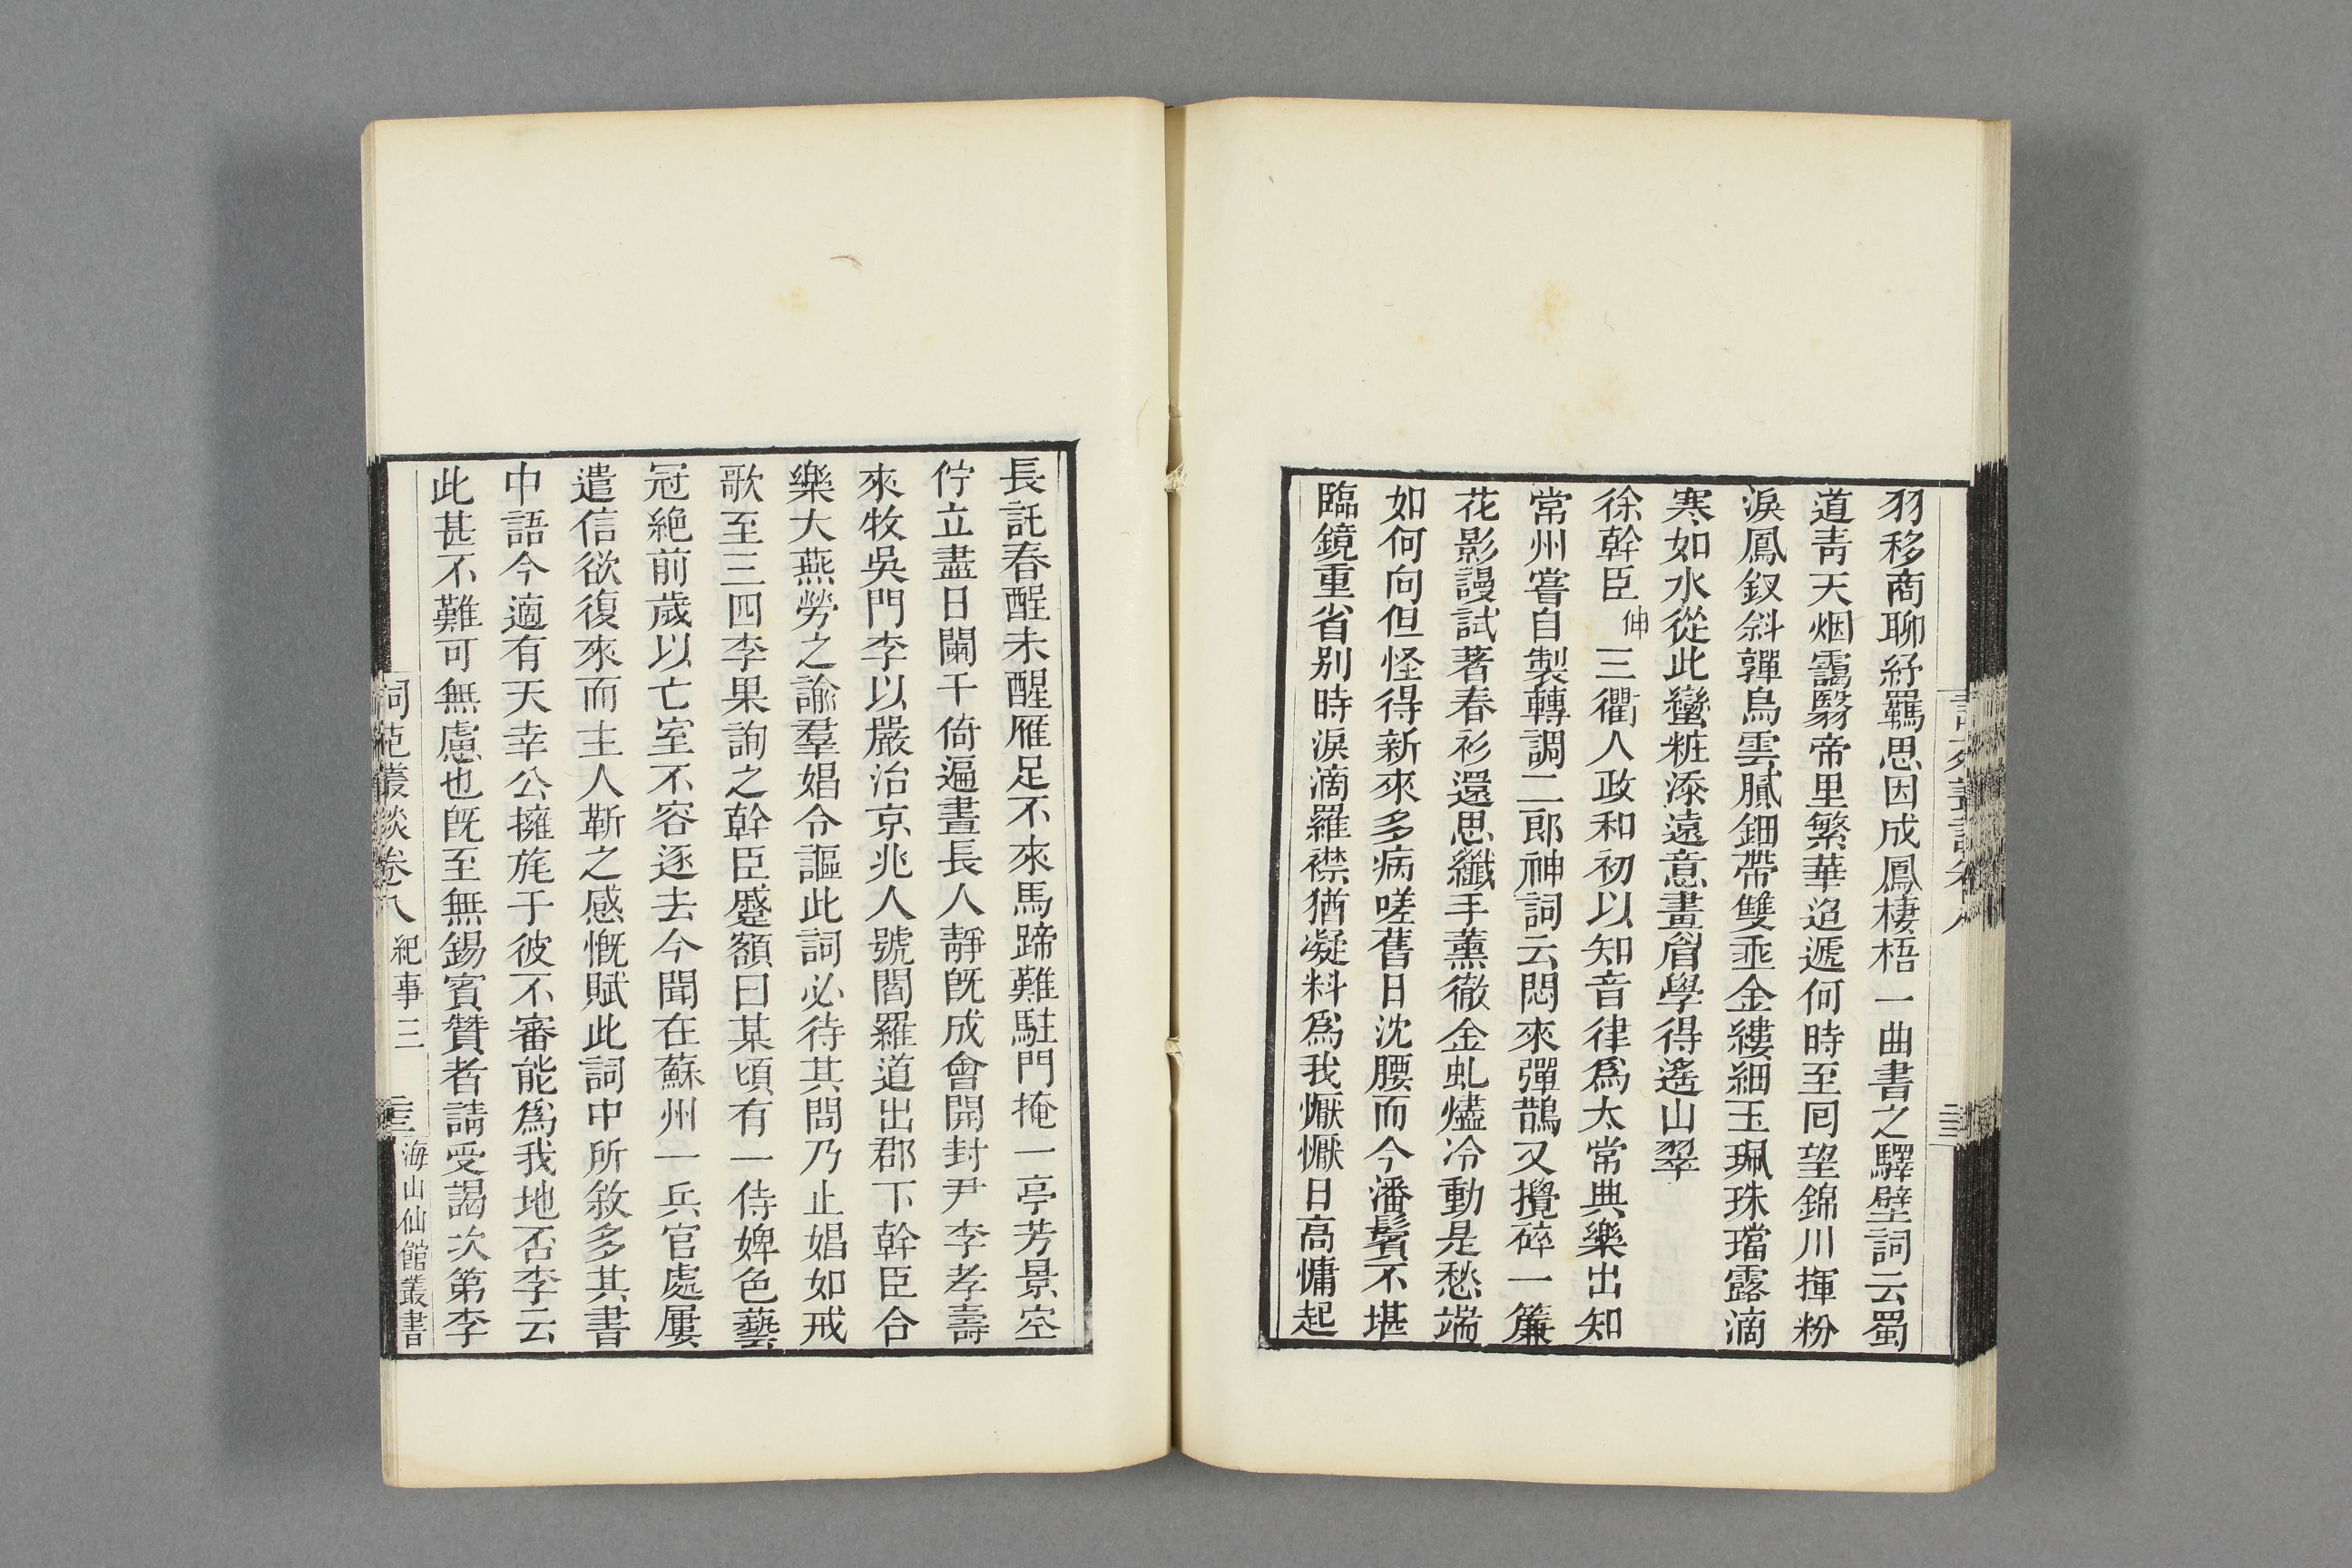 羽移商聊紓羈思因成鳳棲梧一曲書之驛壁詞云蜀
道靑天烟靄翳帝里繁華迢遞何時至囘望錦川揮粉
淚鳳釵斜嚲烏雲膩鈿帶雙垂金縷細玉珮珠璫露滴
寒如水從此鸞粧添遠意畫眉學得遙山翠
徐幹臣
伸
三衢人政和初以知音律爲太常典樂出知
常州嘗自製轉調二郞神詞云悶來彈鵲又攪碎一簾
花影謾試著春衫還思纖手薰徹金虬燼冷動是愁端
如何向但怪得新來多病嗟舊日沈腰而今潘鬢不堪
臨鏡重省别時淚滴羅襟猶凝料爲我懨懨日高慵起
長託春酲未醒雁足不來馬蹄難駐門掩一亭芳景空
佇立盡日闌干倚遍晝長人靜旣成會開封尹李孝壽
來牧吳門李以嚴治京兆人號閻羅道出郡下幹臣合
樂大燕勞之諭羣娼令謳此詞必待其問乃止娼如戒
歌至三四李果詢之幹臣蹙額曰某頃有一侍婢色藝
冠絶前歲以亡室不容逐去今聞在蘇州一兵官處屢
遣信欲復來而主人靳之感慨賦此詞中所敘多其書
中語今適有天幸公擁旄于彼不審能爲我地否李云
此甚不難可無慮也旣至無錫賓贊者請受謁次第李
詞苑叢談卷八 紀事三 三三 海山仙館叢書